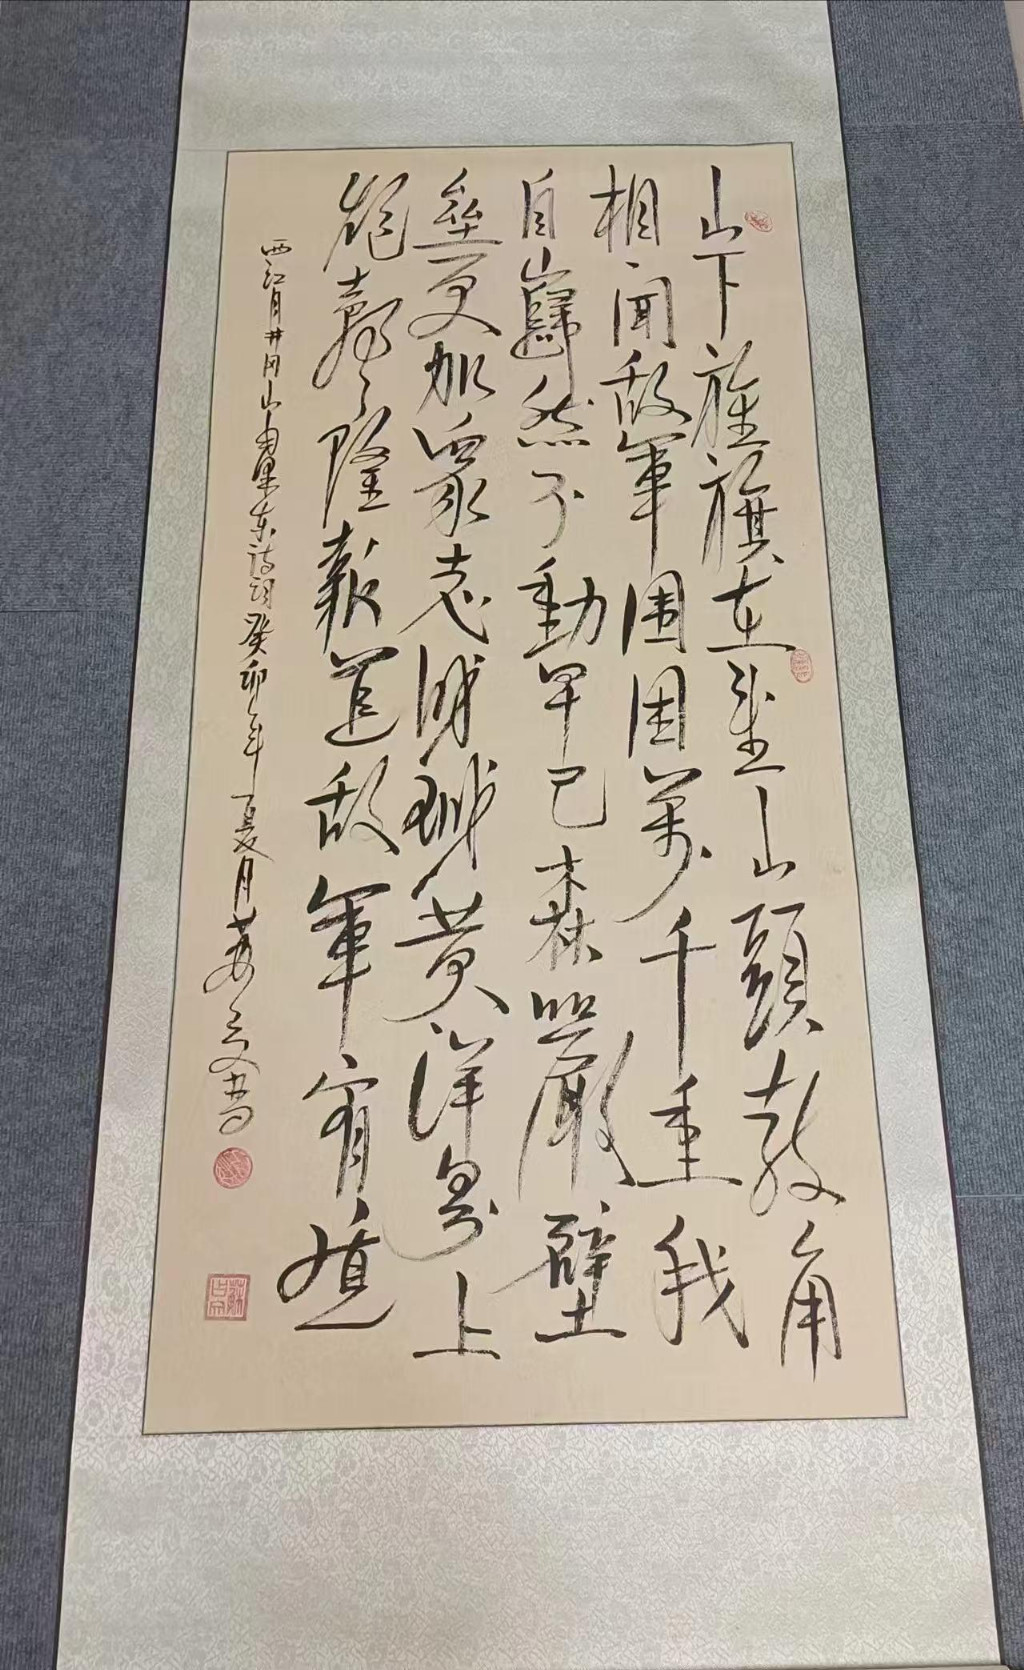 山下旌旗在望山頭鼓角
相闻敌軍围困萬千重我
自巋然不動早已森嚴壁
壘更加眾志成城黄洋界上
炮聲隆報道敌軍宵遁
西江月井冈山毛泽东诗词癸卯年夏月书